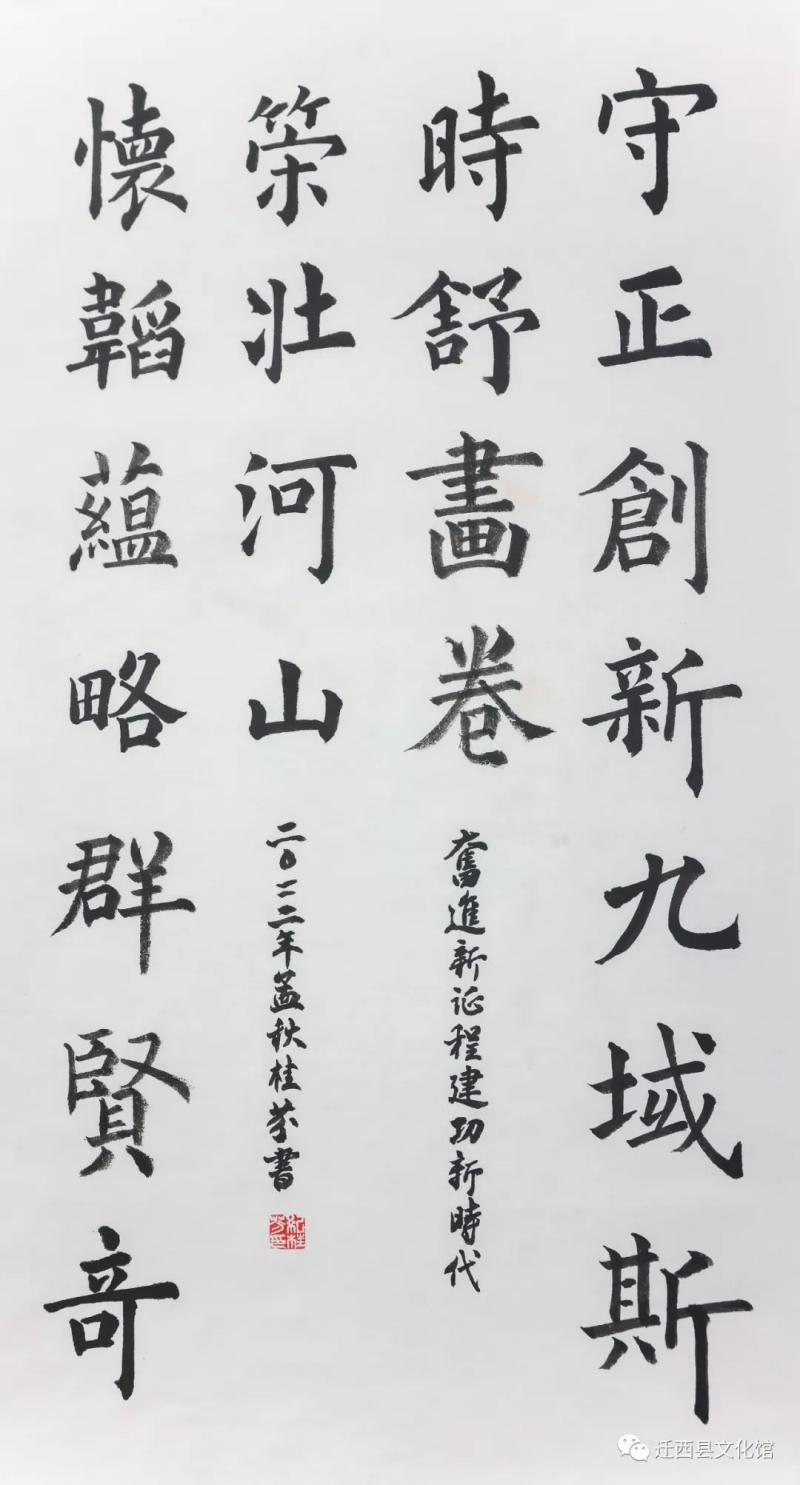 守正創新九域斯
時舒畫卷
懷韜蘊略群賢奇
筞壯河山
奮進新征程建功新時代
二〇二二年孟秋桂芬書
迁西县文化馆